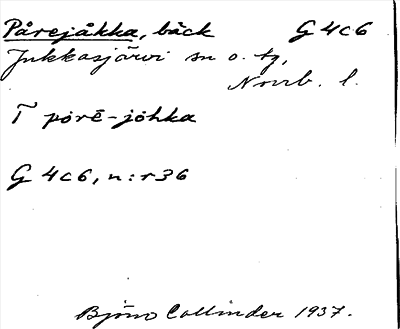 Pårejåkka, bäck G 4c6
Jukkasjärvi sn o. tg,
Norrb. l.
T pὁrē-jὁhka
G 4c6, n:r 36
Björn Collinder 1937.